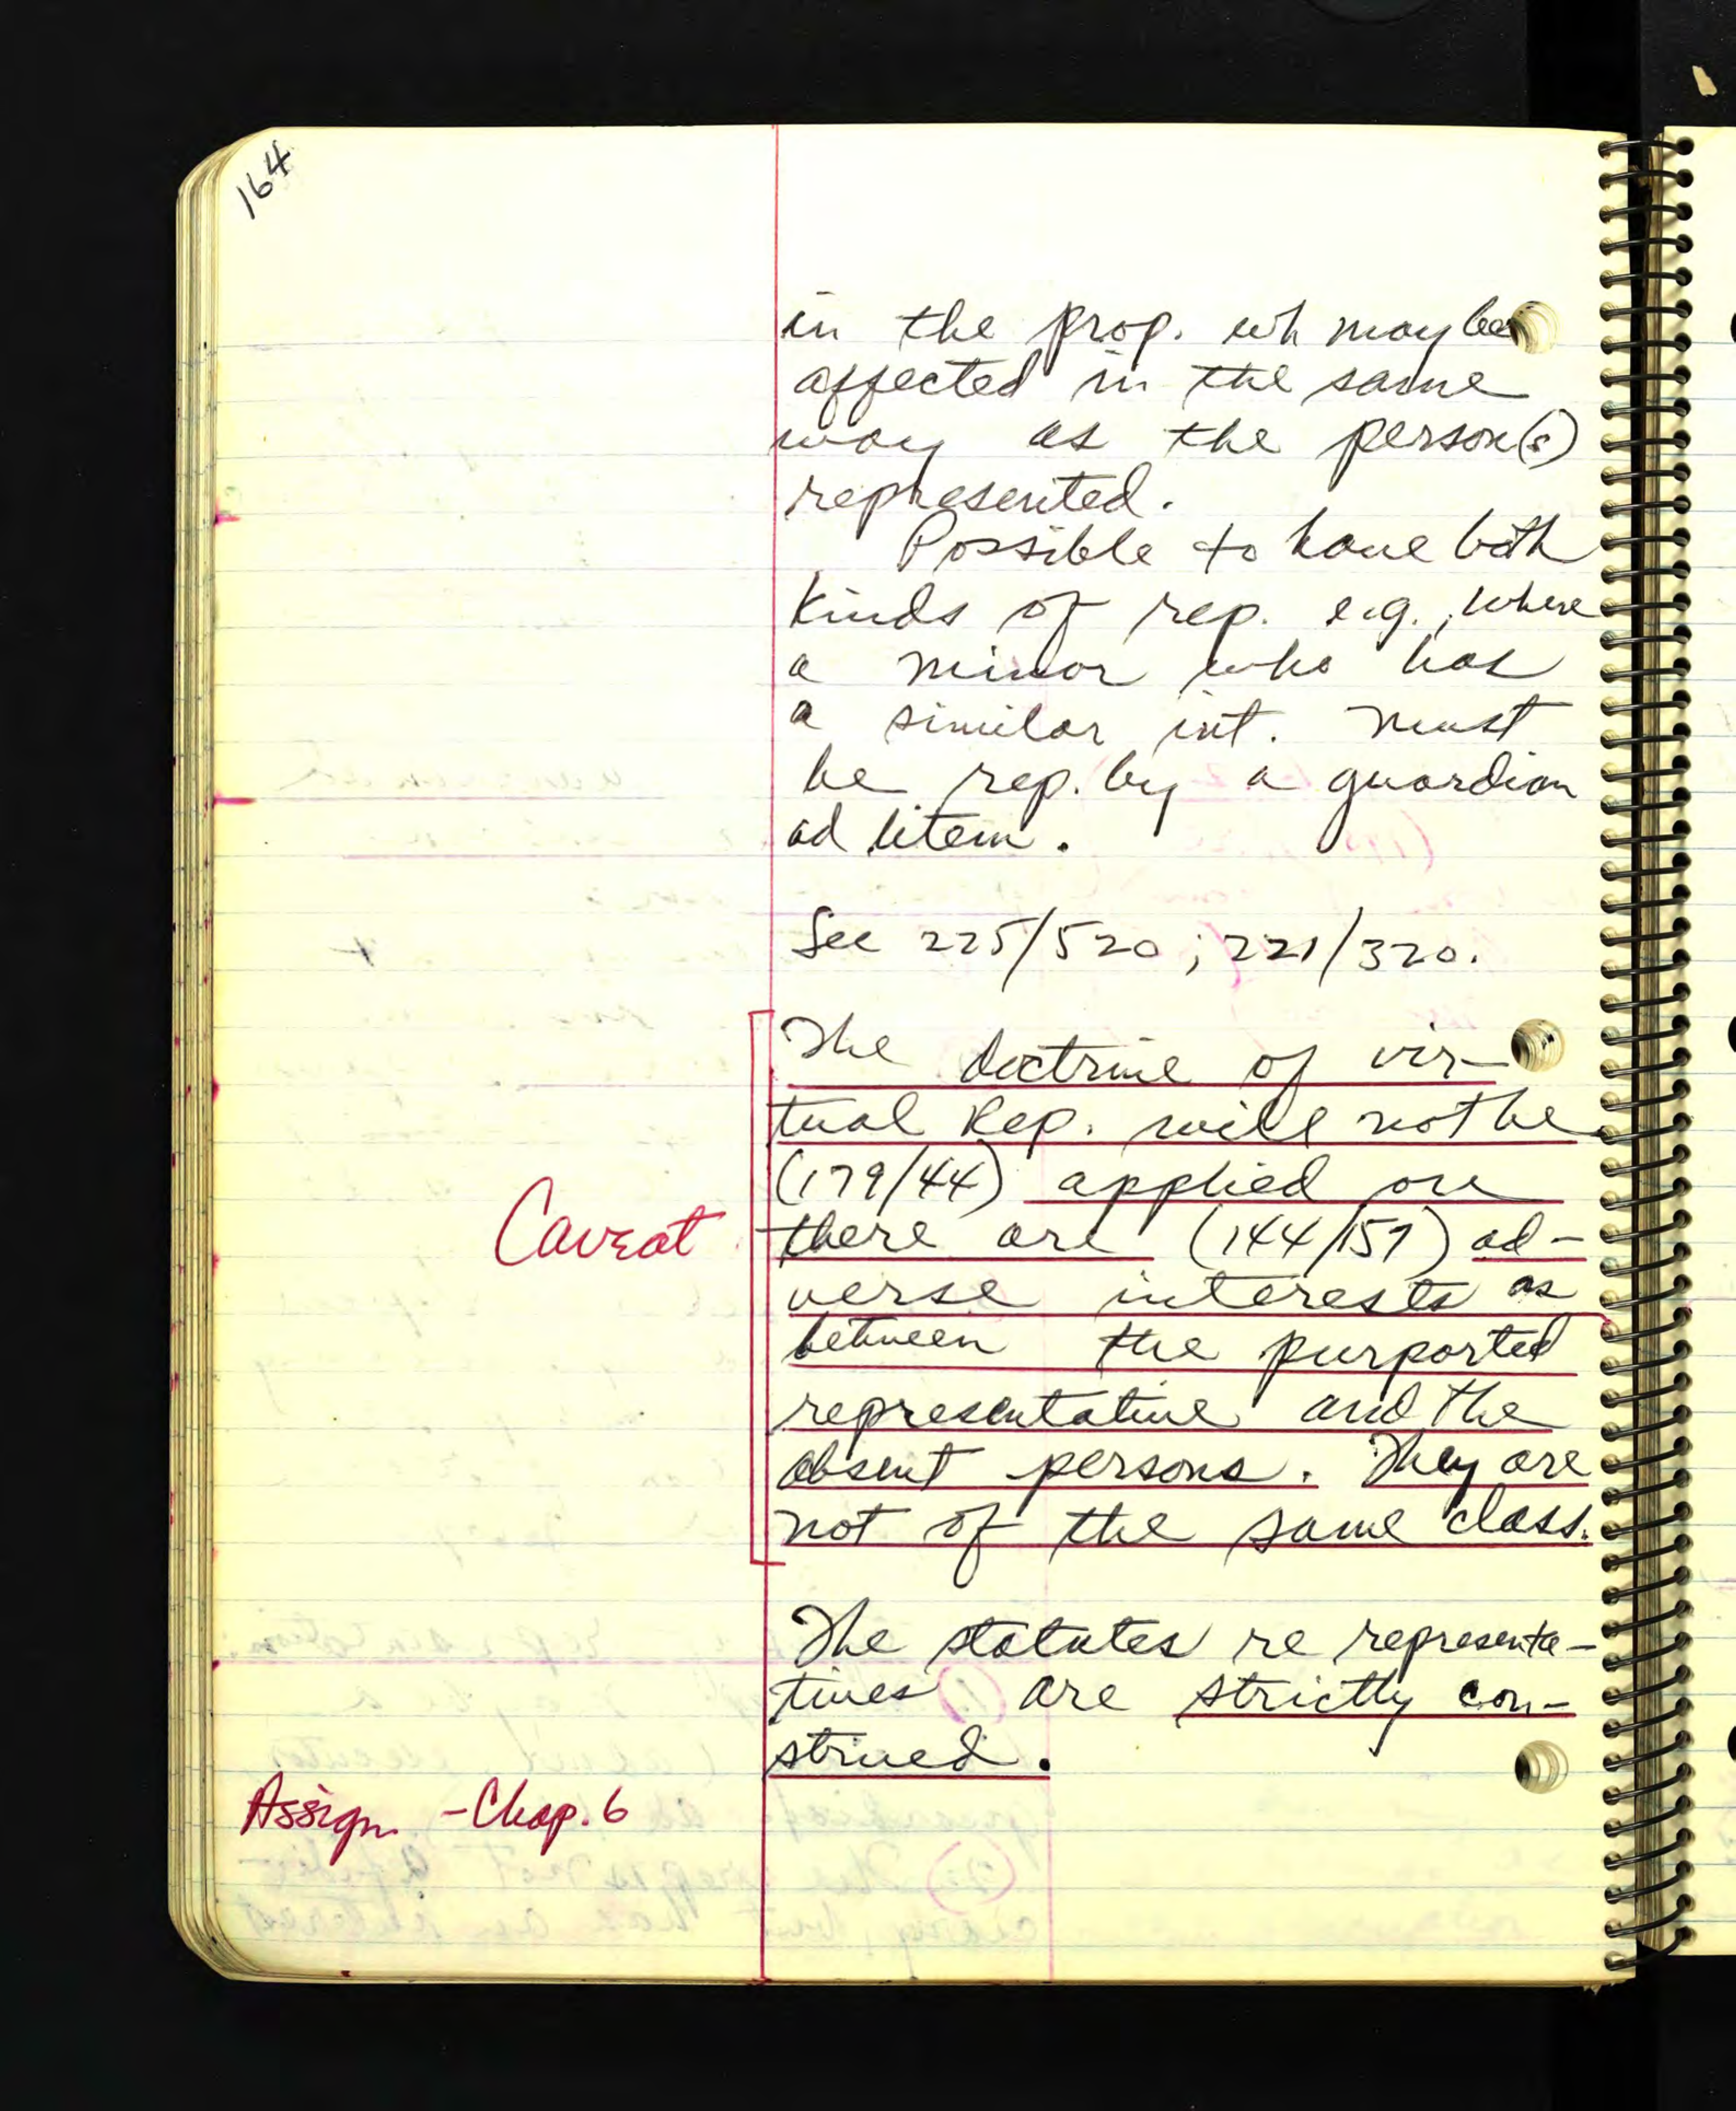 164
in the prop. wh may be
affected in the same
way as the person(s)
represented.
Possible to have both
kinds of rep. e.g., where
a minor who has
a similar int. must
be rep. by a guardian
ad litem.
See 225/520; 221/320.
The doctrine of vir-
tual Rep. will not be
(179/44) applied
Caveat there are (144/157) ad-
verse interests as
between the purported
representative and the
absent persons. They are
not of the same class.
The statutes re representa-
tives are strictly con-
strued.
Assign - Chap. 6